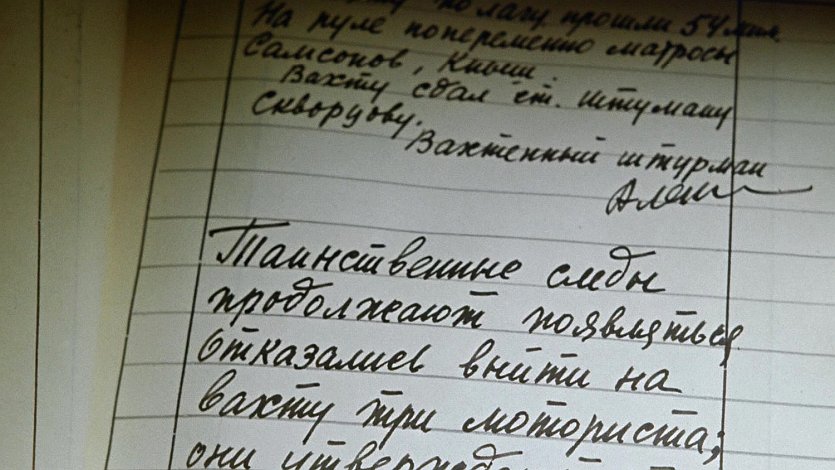 по лагу прошли 54 мил.
На руле попеременно матросы
Самсонов, Кныш.
Вахту сдал ст. штурману
Скворцову.
Вахтенный штурман
Таинственные следы
продолжают появляться
Отказались выйти на
вахту три моториста;
они